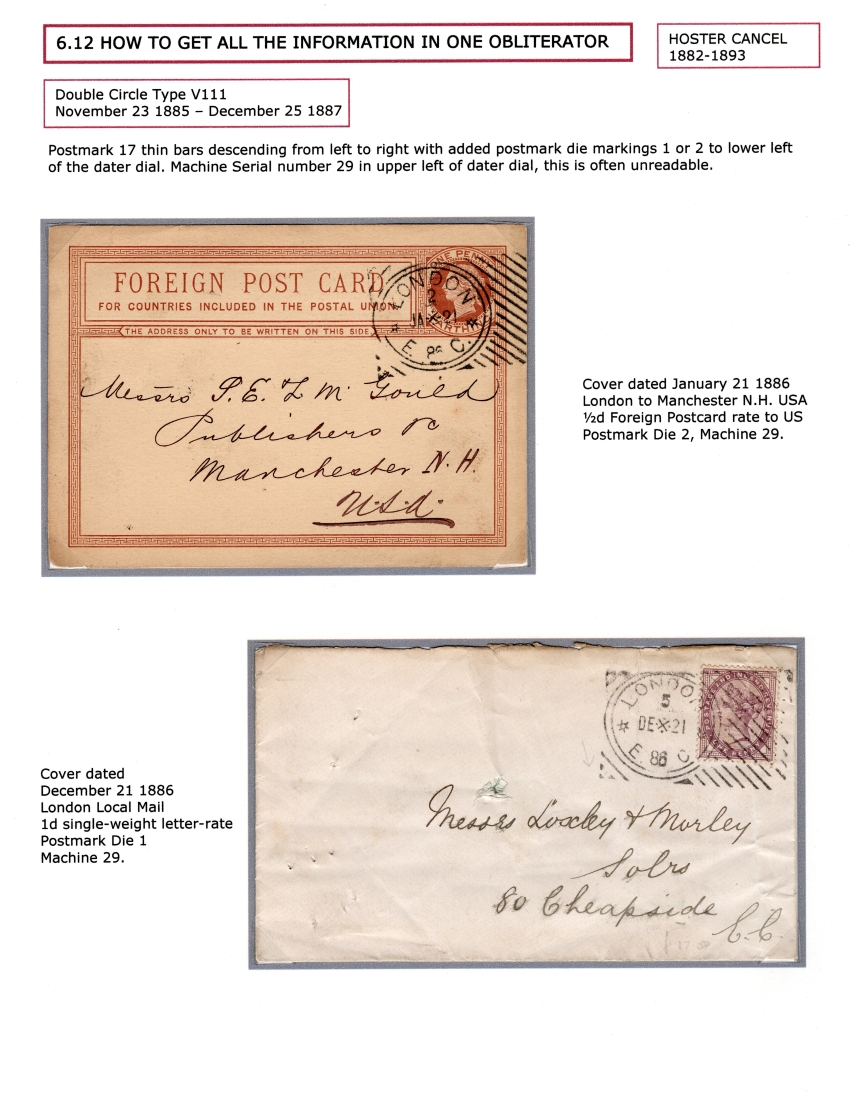 6.12 HOW TO GET ALL THE INFORMATION IN ONE OBLITERATOR
HOSTER CANCEL
1882-1893
Double Circle Type V111
November 23 1885 – December 25 1887
Postmark 17 thin bars descending from left to right with added postmark die markings 1 or 2 to lower left
of the dater dial. Machine Serial number 29 in upper left of dater dial, this is often unreadable.
FOREIGN POST CARD
FOR COUNTRIES INCLUDED IN THE POSTAL UNION.
THE ADDRESS ONLY TO BE WRITTEN ON THIS SIDE.
ONE PENNY
FARTHING
LONDON
2
JA 21
86
E. C.
Messrs P. E. & M. Gould
Publishers &c
Manchester N. H.
U.S.A.
Cover dated January 21 1886
London to Manchester N.H. USA
½d Foreign Postcard rate to US
Postmark Die 2, Machine 29.
LONDON
5
DE 21
86
E. C.
Messrs Loxley & Morley
Solrs
80 Cheapside
E.C.
Cover dated
December 21 1886
London Local Mail
1d single-weight letter-rate
Postmark Die 1
Machine 29.